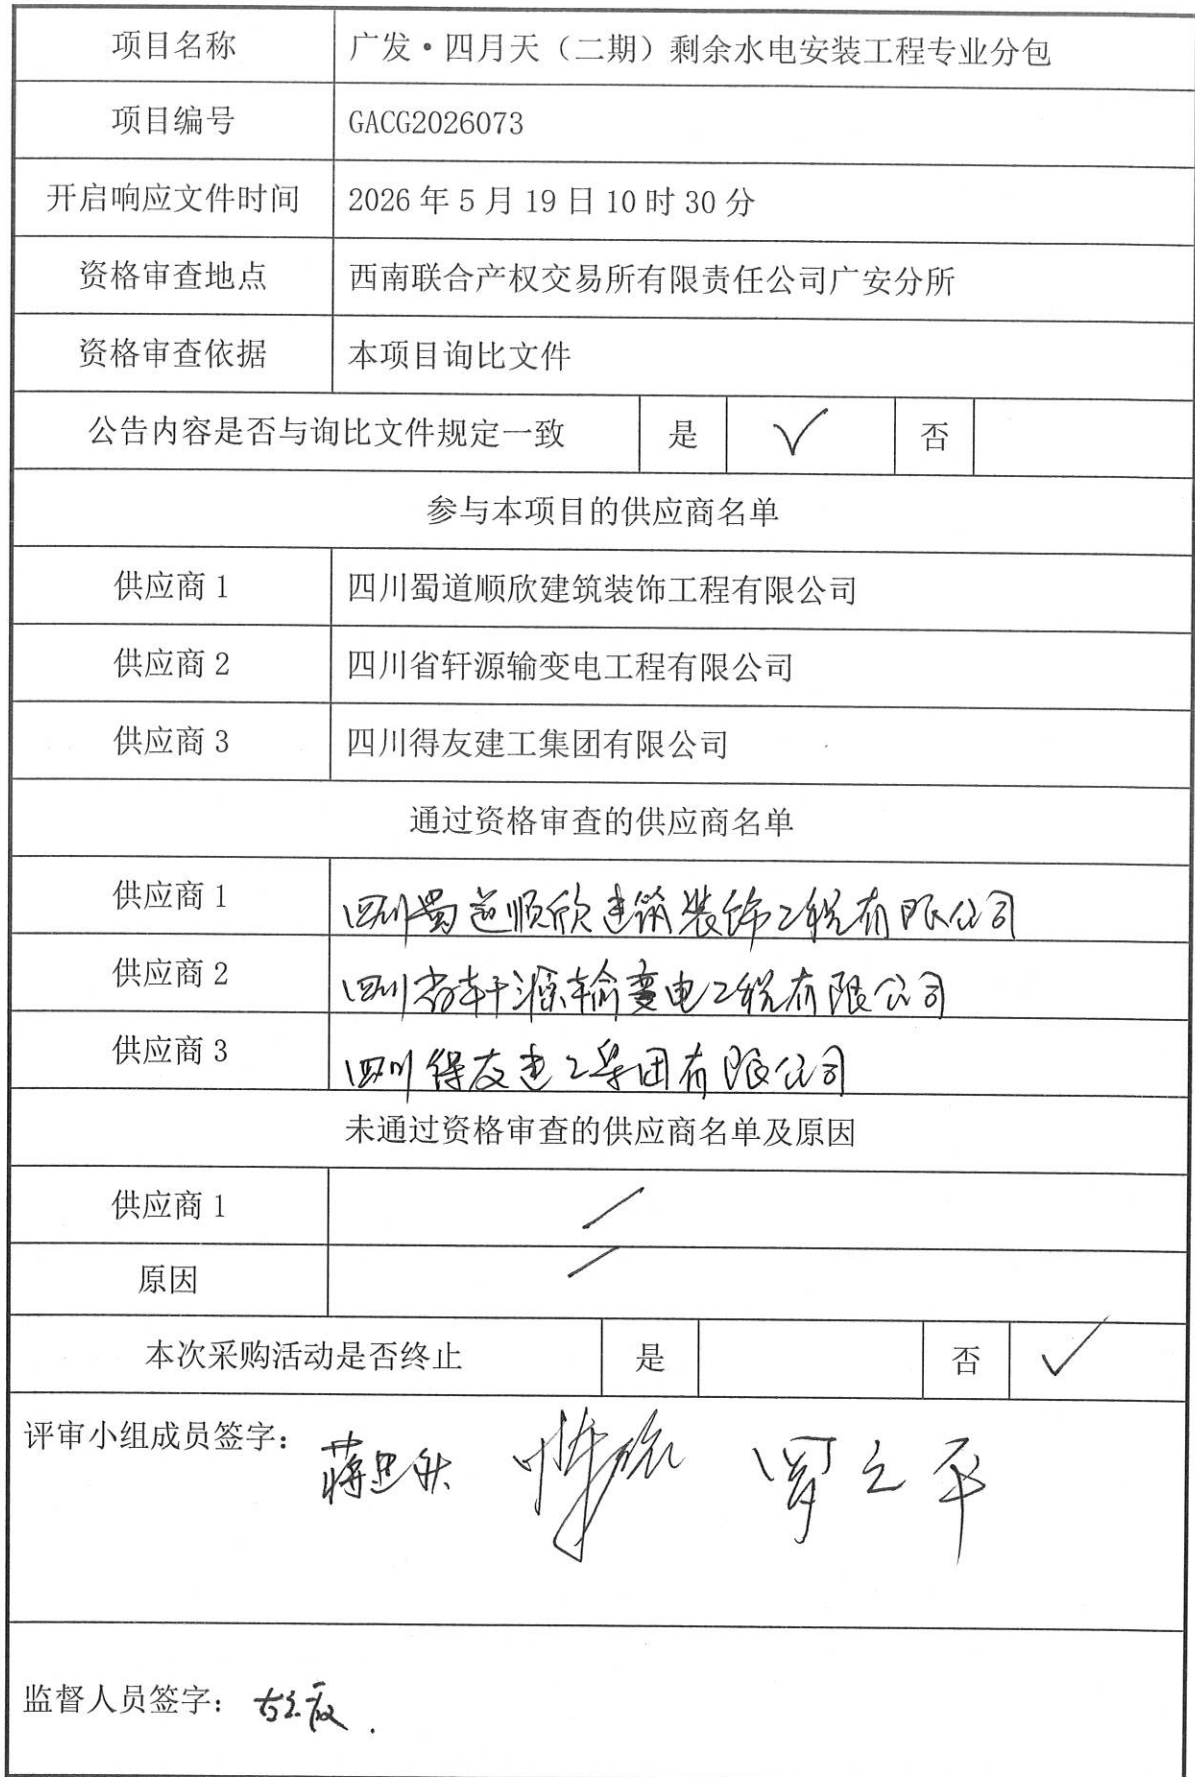 项目名称 广发·四月天（二期）剩余水电安装工程专业分包
项目编号 GACG2026073
开启响应文件时间 2026年5月19日10时30分
资格审查地点 西南联合产权交易所有限责任公司广安分所
资格审查依据 本项目询比文件
公告内容是否与询比文件规定一致 是 √ 否
参与本项目的供应商名单
供应商1 四川蜀道顺欣建筑装饰工程有限公司
供应商2 四川省轩源输变电工程有限公司
供应商3 四川得友建工集团有限公司
通过资格审查的供应商名单
供应商1 四川蜀道顺欣建筑装饰工程有限公司
供应商2 四川省轩源输变电工程有限公司
供应商3 四川得友建工集团有限公司
未通过资格审查的供应商名单及原因
供应商1 /
原因 /
本次采购活动是否终止 是 否 √
评审小组成员签字：
监督人员签字：